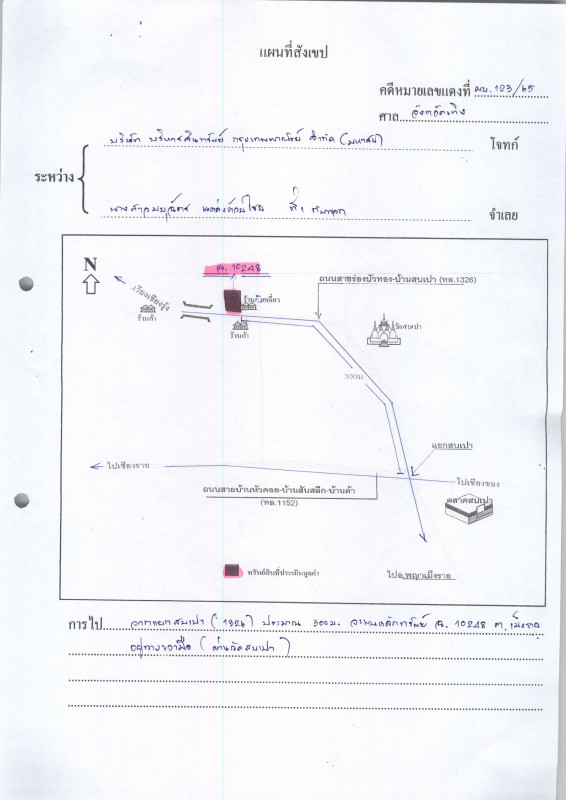 แผนที่สังเขป
คดีหมายเลขแดงที่ ผบ.123/65
ศาล จังหวัดเทิง
บริษัท บริหารสินทรัพย์ กรุงเทพพาณิชย์ จำกัด (มหาชน) โจทก์
ระหว่าง
นางสาว ที่ 1 กับพวก จำเลย
N
ฉ. 10248
ถนนสายร่องบัวทอง-บ้านสบเปา (ทล.1326)
เวียงเชียงรุ้ง
ร้านก๋วยเตี๋ยว
ร้านค้า
ร้านค้า
วัดสบเปา
300ม
แยกสบเปา
ไปเชียงราย
ไปเชียงของ
ถนนสายบ้านหัวดอย-บ้านสันสลีก-บ้านต้า
(ทล.1152)
ตลาดสบเปา
ทรัพย์สินที่ประเมินมูลค่า
ไปอ.พญาเม็งราย
การไป จากแยกสบเปา (1326) ประมาณ 300ม. จะพบหลักทรัพย์ ฉ. 10248 ต. เม็งราย
อยู่ทางขวามือ (ผ่านวัดสบเปา)